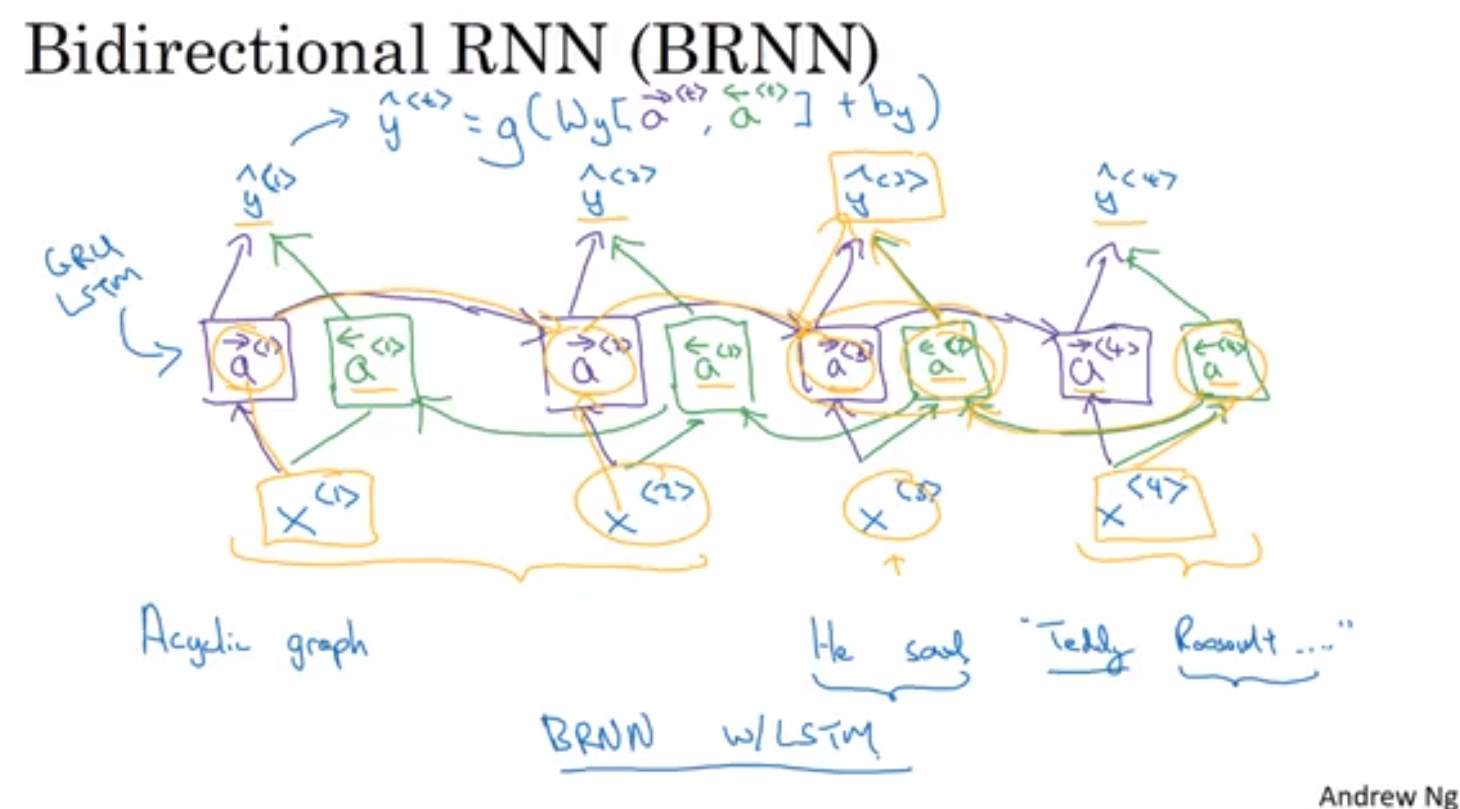 Bidirectional RNN (BRNN)
ŷ<t> = g(Wy[a→<t>, a←<t>] + by)
ŷ<1> ŷ<2> ŷ<3> ŷ<4>
GRU
LSTM
a→<1> a←<1> a→<2> a←<2> a→<3> a←<3> a→<4> a←<4>
x<1> x<2> x<3> x<4>
Acyclic graph
He said, "Teddy Roosevelt...."
BRNN w/LSTM
Andrew Ng